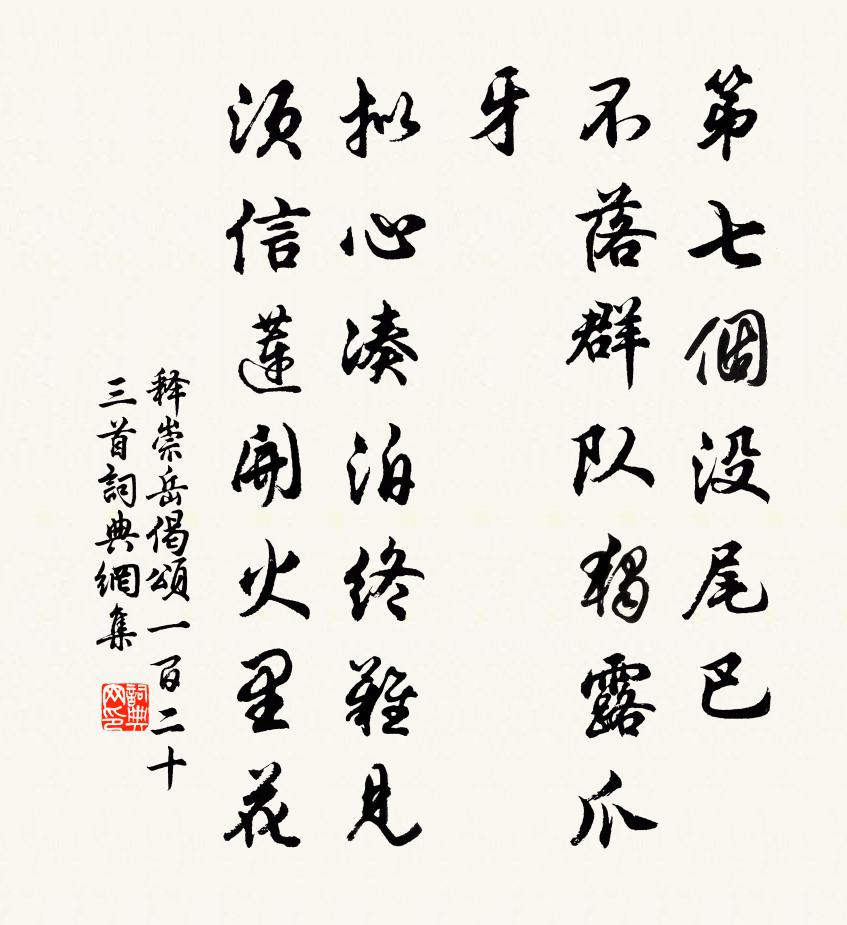 第七個没尾巴
不落群队獨露爪
牙
拟心湊泊终難見
须信蓮開火里花
释崇岳偈頌一百二十
三首詞典網集
詞典网印